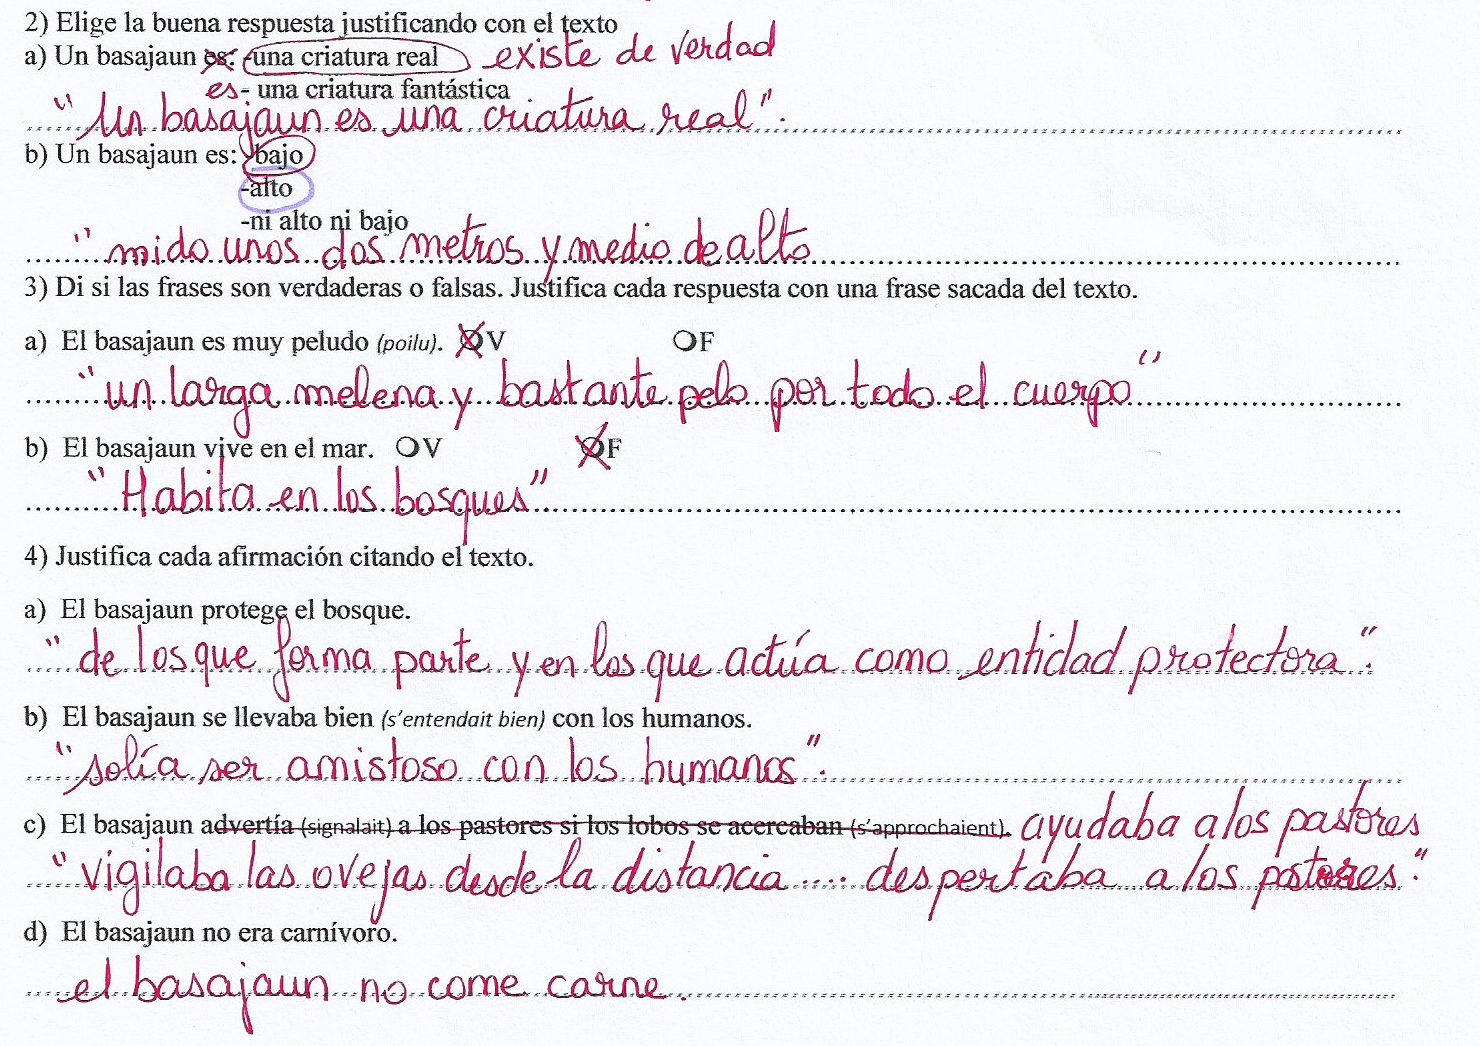 2) Elige la buena respuesta justificando con el texto
a) Un basajaun es: -una criatura real existe de verdad
es - una criatura fantástica
"Un basajaun es una criatura real".
b) Un basajaun es: -bajo
-alto
-ni alto ni bajo
"mido unos dos metros y medio de alto
3) Di si las frases son verdaderas o falsas. Justifica cada respuesta con una frase sacada del texto.
a) El basajaun es muy peludo (poilu). V F
"un larga melena y bastante pelo por todo el cuerpo"
b) El basajaun vive en el mar. V F
"Habita en los bosques"
4) Justifica cada afirmación citando el texto.
a) El basajaun protege el bosque.
"de los que forma parte y en los que actúa como entidad protectora".
b) El basajaun se llevaba bien (s'entendait bien) con los humanos.
"solía ser amistoso con los humanos".
c) El basajaun advertía (signalait) a los pastores si los lobos se acercaban (s'approchaient). ayudaba a los pastores
"vigilaba las ovejas desde la distancia .... despertaba a los pastores."
d) El basajaun no era carnívoro.
el basajaun no come carne.